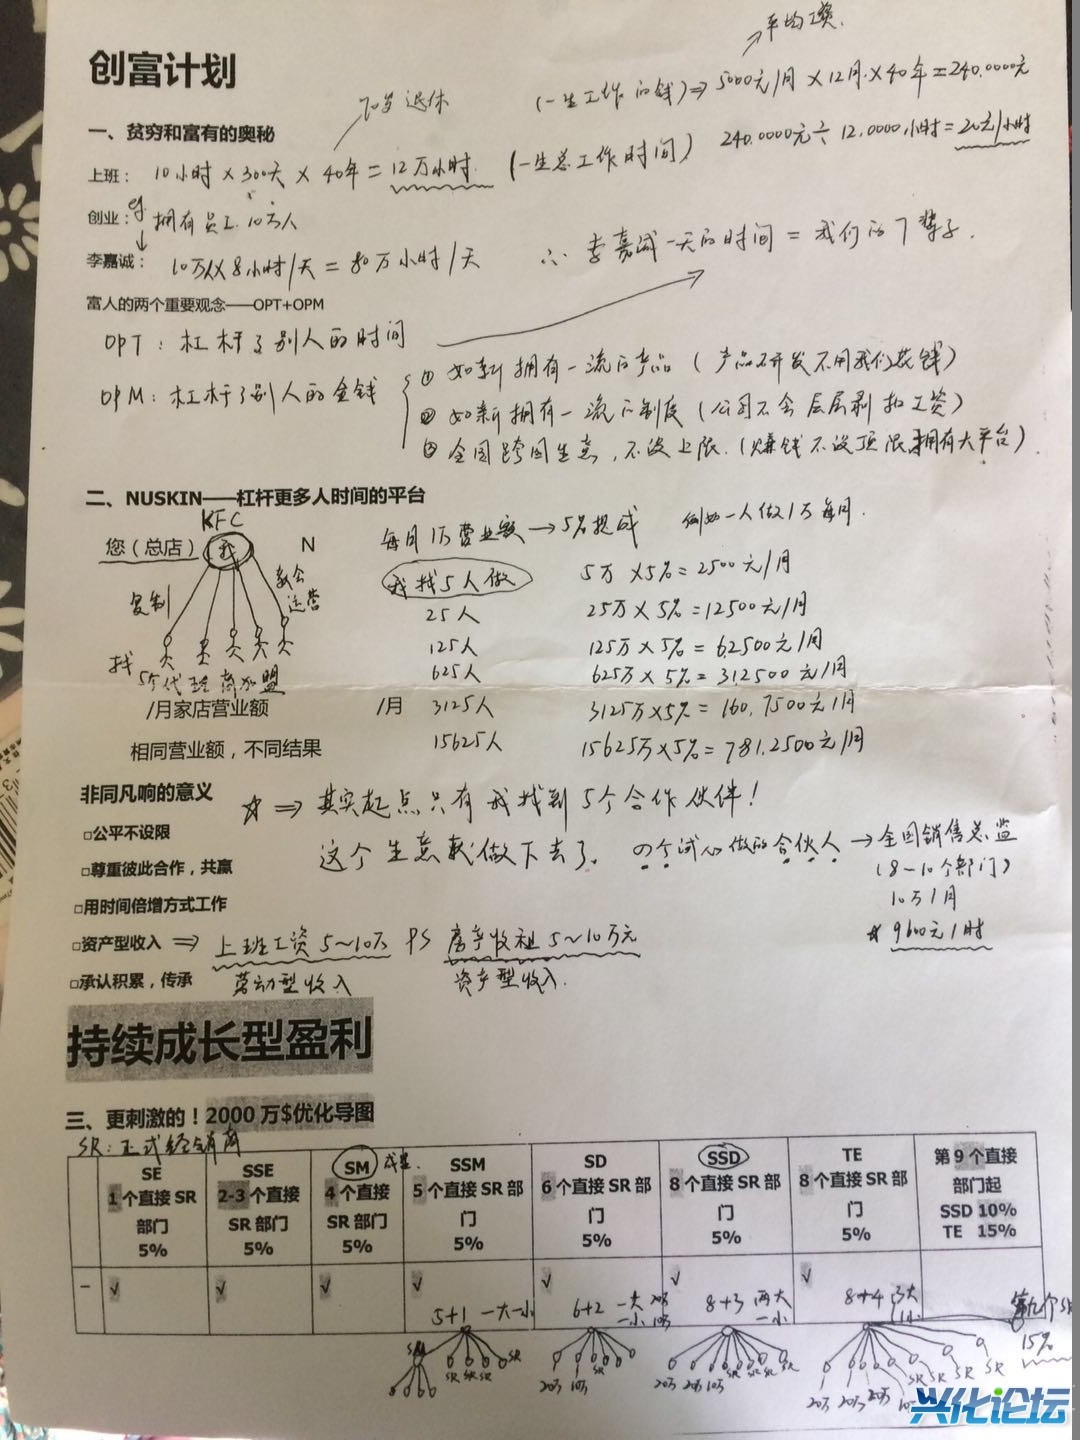 平均工资.
创富计划
70岁退休
(一生工作的钱)⇒5000元/月×12月×40年=240.0000元
一、贫穷和富有的奥秘
240.0000元÷12.0000小时=20元/小时
上班: 10小时×300天×40年=12万小时. (一生总工作时间)
创业: eg 拥有员工10万人
李嘉诚: 10万人×8小时/天=80万小时/天
∴李嘉诚一天的时间=我们的7辈子.
富人的两个重要观念——OPT+OPM
OPT:杠杆了别人的时间
OPM:杠杆了别人的金钱
① 如新拥有一流的产品(产品研发不用我们花钱)
② 如新拥有一流的制度(公司不会层层剥扣工资)
③ 全国跨国生意,不设上限.(赚钱不设顶限拥有大平台)
二、NUSKIN——杠杆更多人时间的平台
KFC
每月1万营业额→5%提成 例如一人做1万每月.
您(总店) 我 N
复制
教会运营
我找5人做 5万×5%=2500元/月
25人 25万×5%=12500元/月
125人 125万×5%=62500元/月
找5个代理商加盟
625人 625万×5%=312500元/月
/月家店营业额 /月 3125人 3125万×5%=160.7500元/月
相同营业额,不同结果 15625人 15625万×5%=781.2500元/月
非同凡响的意义
☆⇒其实起点只有我找到5个合作伙伴!
□公平不设限
这个生意就做下去了.
→全国销售总监
(8-10个部门)
10万/月
☆9600元/时
□尊重彼此合作,共赢
□用时间倍增方式工作
□资产型收入⇒上班工资5~10万 PS 房子收租5~10万元
□承认积累,传承 劳动型收入 资产型收入.
持续成长型盈利
三、更刺激的!2000万$优化导图
SR:正式经销商
SE
1个直接SR
部门
5%
SSE
2-3个直接
SR部门
5%
SM
4个直接
SR部门
5%
SSM
5个直接SR部
门
5%
SD
6个直接SR部
门
5%
SSD
8个直接SR部
门
5%
TE
8个直接SR部
门
5%
第9个直接
部门起
SSD 10%
TE 15%
一 √ √ √ √ √ √ √
5+1 一大一小
6+2 一大20万
一小10万
8+3 两大
一小
8+4 3大
1小
第九个SR
15%
SM SR SR SR SR
20万 10万 SR SR
20万 20万 10万 SR SR SR SR
20万 20万 20万 10万 SR SR SR SR
兴化论坛